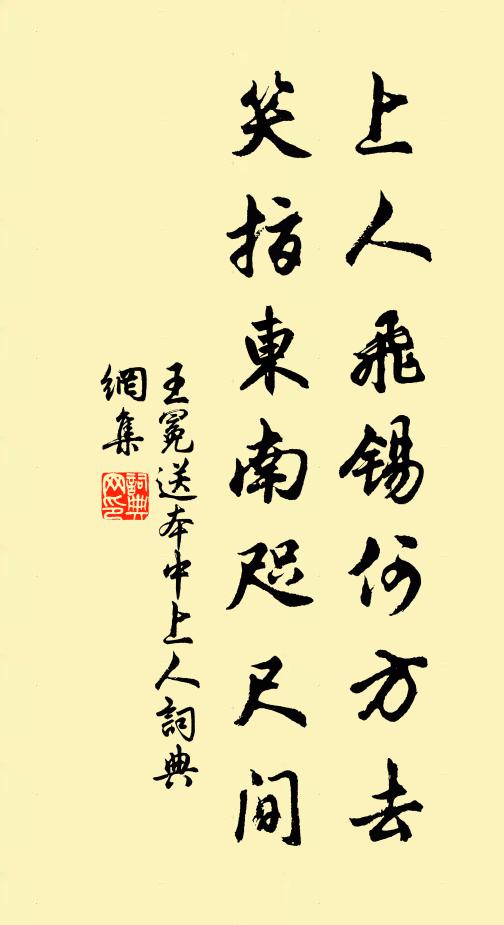 上人飛錫何方去
笑指東南咫尺間
王冕送本中上人詞典
網集
詞典
网印